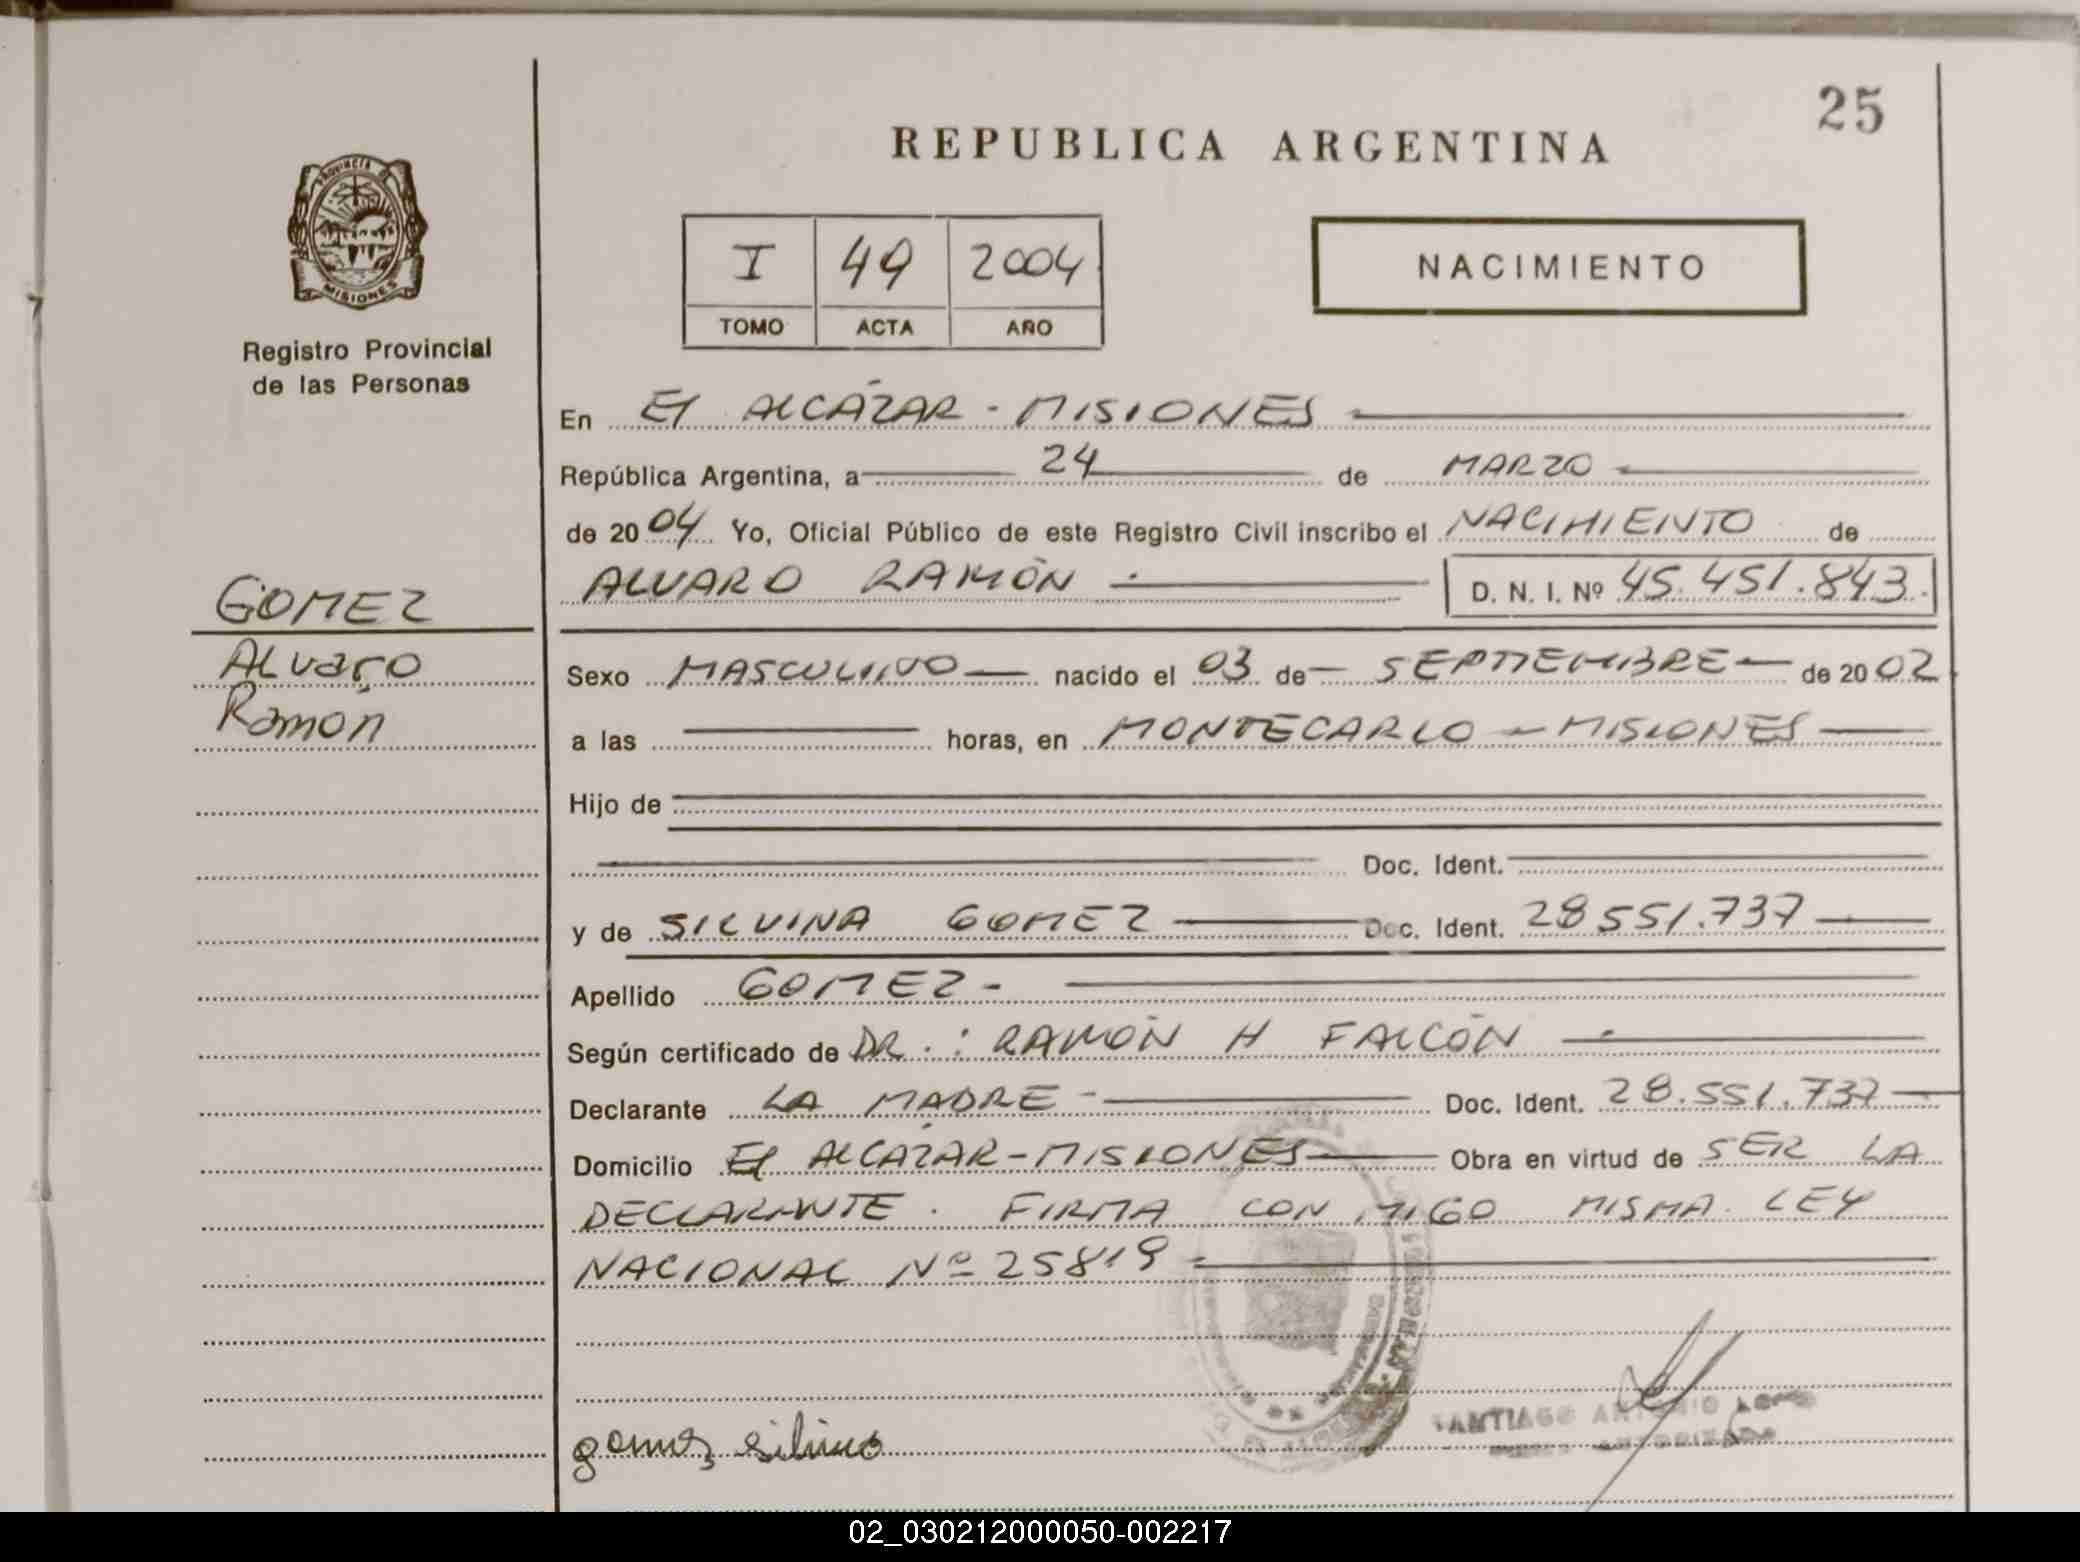 25
REPUBLICA ARGENTINA
PROVINCIA DE
MISIONES
Registro Provincial
de las Personas
I 49 2004
TOMO ACTA AÑO
NACIMIENTO
En El ALCÁZAR - MISIONES
República Argentina, a 24 de MARZO
de 2004 Yo, Oficial Público de este Registro Civil inscribo el NACIMIENTO de
ALVARO RAMÓN D. N. I. Nº 45.451.843.
GOMEZ
Alvaro
Ramón
Sexo MASCULINO nacido el 03 de SEPTIEMBRE de 2002
a las horas, en MONTECARLO - MISIONES
Hijo de
Doc. Ident.
y de SILVINA GOMEZ Doc. Ident. 28551.737
Apellido GOMEZ -
Según certificado de DR.: RAMÓN H FALCÓN
Declarante LA MADRE - Doc. Ident. 28.551.737
Domicilio El ALCÁZAR - MISIONES Obra en virtud de SER LA
DECLARANTE. FIRMA CON MIGO MISMA. LEY
NACIONAL Nº 25819
gomez silvina
SANTIAGO ANTONIO
02_030212000050-002217